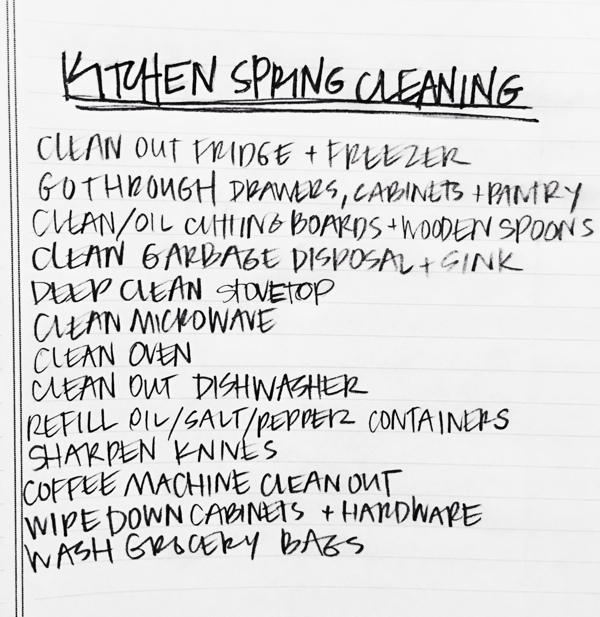 KITCHEN SPRING CLEANING
CLEAN OUT FRIDGE + FREEZER
GO THROUGH DRAWERS, CABINETS + PANTRY
CLEAN/OIL CUTTING BOARDS + WOODEN SPOONS
CLEAN GARBAGE DISPOSAL + SINK
DEEP CLEAN STOVETOP
CLEAN MICROWAVE
CLEAN OVEN
CLEAN OUT DISHWASHER
REFILL OIL/SALT/PEPPER CONTAINERS
SHARPEN KNIVES
COFFEE MACHINE CLEAN OUT
WIPE DOWN CABINETS + HARDWARE
WASH GROCERY BAGS